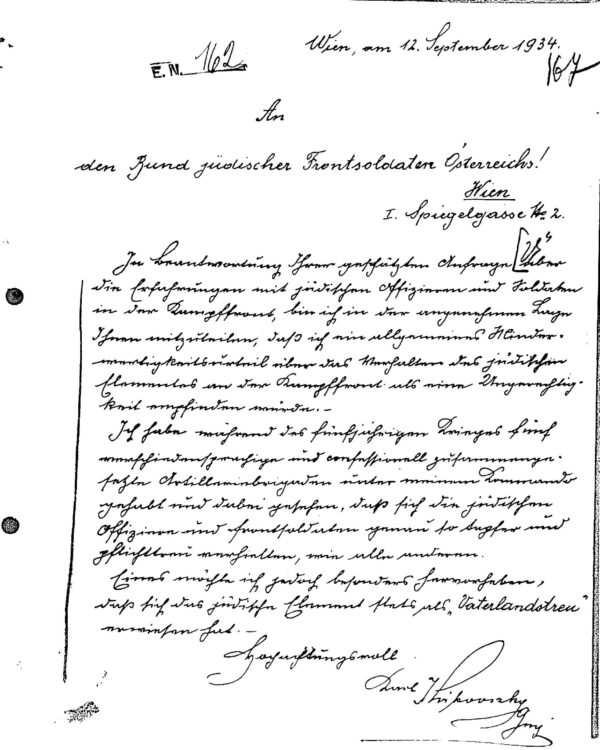 Wien, am 12. September 1934.
E.N. 162
167
An
den Bund jüdischer Frontsoldaten Österreichs!
Wien
I. Spiegelgasse No. 2.
In Beantwortung Ihrer geschätzten Anfrage über
die Erfahrungen mit jüdischen Offizieren und Soldaten
in der Kampffront, bin ich in der angenehmen Lage
Ihnen mitzuteilen, daß ich ein allgemeines Minder-
wertigkeitsurteil über das Verhalten des jüdischen
Elementes an der Kampffront als eine Ungerechtig-
keit empfinden würde.-
Ich habe während des fünfjährigen Krieges fünf
verschiedensprachige und confessionell zusammenge-
setzte Artilleriebrigaden unter meinem Kommando
gehabt und dabei gesehen, daß sich die jüdischen
Offiziere und Frontsoldaten genau so tapfer und
pflichttreu verhielten, wie alle anderen.
Eines möchte ich jedoch besonders hervorheben,
daß sich das jüdische Element stets als „Vaterlandstreu"
erwiesen hat.-
Hochachtungsvoll
Karl